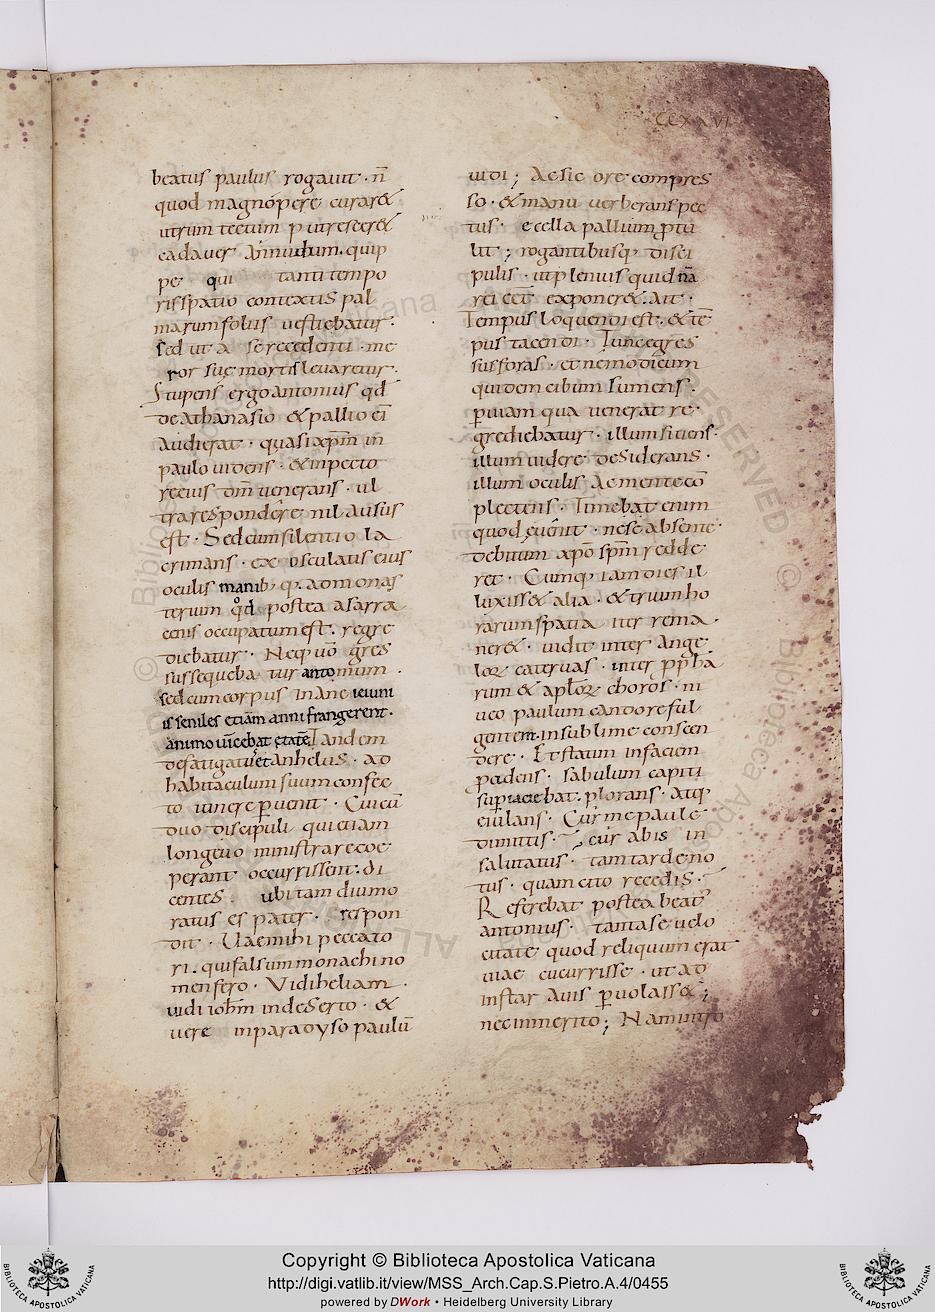 CCXXVI
beatus paulus rogauit · n̄
quod magnopere curar&
utrum tecum putresceret
cadauer an nudum. quip
pe qui tanti tempo
ris spatio contextis pal
marum foliis uestiebatur:
sed ut a se recedenti · me
ror sue mortis leuaretur·
Stupens ergo antonius qđ
de Athanasio & pallio ei
audierat · quasi xp̄m in
paulo uidens · & in pecto
re eius dm̄ uenerans · ul
tra respondere nil ausus
est · Sed cum silentio la
crimans · exosculatis eius
oculis manib; q. ad monas
terium qđ postea a sarra
cenis occupatum est · regre
diebatur · Neq; uo gres
sus sequebatur antonium ·
sed cum corpus inane ieiuni
is seniles etiam anni frangerent·
animo uincebat etatē Tandem
defatigatus et anhelus · ad
habitaculum suum confec
to itinere puenit · Cui cū
duo discipuli qui etiam
longeuo ministrare coe
perant occurrissent: di
centes ubi tam diu mo
ratus es pater · respon
dit · Uae mihi peccato
ri . qui falsum monachi no
men fero · Vidi heliam ·
uidi ioh̄m in deserto · &
uere in paradyso paulū
uidi ; Ac sic ore compres
so · & manu uerberans pec
tus · e cella pallium p̱tu
lit ; rogantibusq; disci
pulis · ut plenius quidnā
rei eēt exponer& · ait ·
Tempus loquendi est · & tē
pus tacendi · Tunc egres
sus foras · et ne modicum
quidem cibum sumens ·
p uiam qua uenerat re
grediebatur · illum sitiens·
illum uidere desiderans ·
illum oculis ac mente cō
plectens · Timebat enim
quod euenit · ne se absente·
debitum xp̄o sp̄m redde
ret · Cumq; iam dies il
luxiss& alia · & trium ho
rarum spatia iter rema ·
ner& · uidit inter ange
loꝝ cateruas · inter pp̄ha
rum & aplōꝝ choros · ni
ueo paulum candore ful
gentem· in sublime conscen
dere · Et statim in faciem
procidens · sabulum capiti
supiaciebat · plorans · atq;
eiulans · Cur me paule
dimittis · cur abis in
salutatus · tam tarde no
tus · quam cito recedis ·
Referebat postea beat᾽
antonius · tanta se uelo
citate quod reliquum erat
uiae cucurrisse · ut ad
instar auis puolass& ;
nec inmerito ; Nam intro
© Biblioteca Apostolica Vaticana ALL RIGHTS RESERVED
Copyright © Biblioteca Apostolica Vaticana
http://digi.vatlib.it/view/MSS_Arch.Cap.S.Pietro.A.4/0455
powered by DWork • Heidelberg University Library
BIBLIOTECA APOSTOLICA VATICANA
BIBLIOTECA APOSTOLICA VATICANA